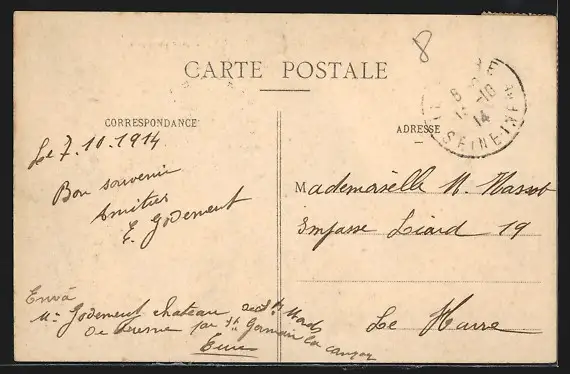 8
CARTE POSTALE
CORRESPONDANCE
Le 7.10.1914
Bon souvenir
Amitiés
E. Godement
Envoi
Me Godement chateau
De par St Germain la
Eure
ADRESSE
Mademoiselle M.
Impasse Liard 19
Le Havre
8
-10
14
SEINE-INFRE